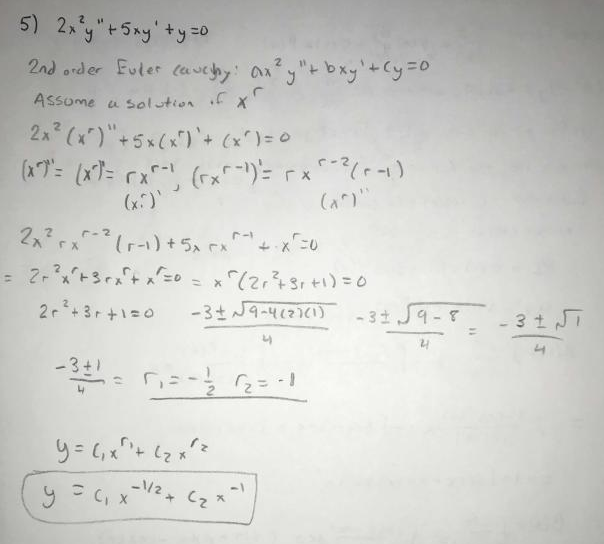 5) 2x²y"+5xy'+y=0
2nd order Euler Cauchy: ax²y"+bxy'+cy=0
Assume a solution of x^r
2x²(x^r)"+5x(x^r)'+(x^r)=0
(x^r)"= (x^r)'= rx^(r-1), (rx^(r-1))'= rx^(r-2)(r-1)
(x^r)' (x^r)"
2x² rx^(r-2)(r-1)+5x rx^(r-1)+x^r=0
= 2r²x^r+3rx^r+x^r=0 = x^r(2r²+3r+1)=0
2r²+3r+1=0 (-3±√(9-4(2)(1)))/4 (-3±√(9-8))/4 = (-3±√1)/4
(-3±1)/4 = r₁=-1/2 r₂=-1
y=c₁x^r₁+c₂x^r₂
y=c₁x^(-1/2)+c₂x^(-1)